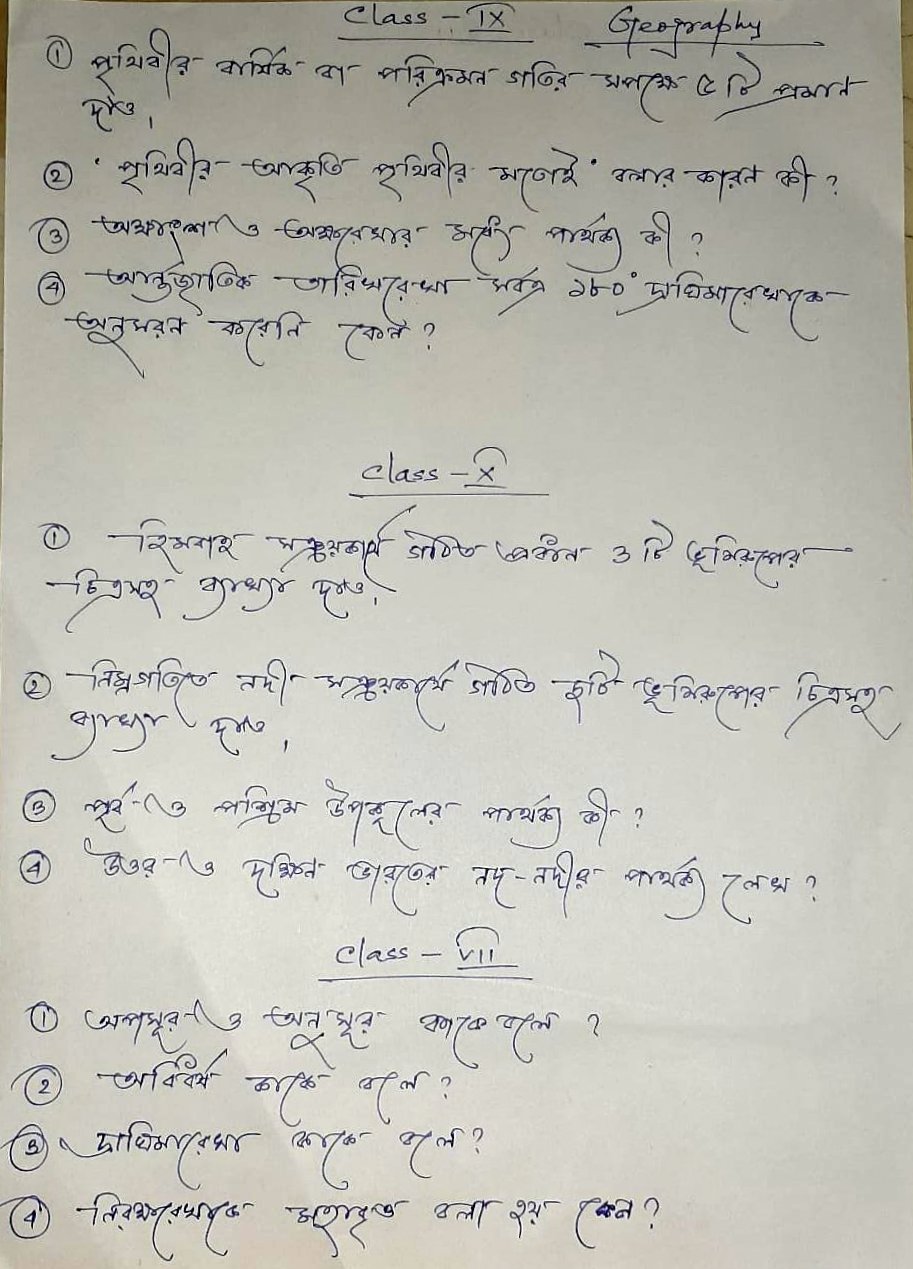 Class - IX Geography
① পৃথিবীর বার্ষিক বা পরিক্রমন গতির সপক্ষে ৫ টি প্রমান
দাও,
② 'পৃথিবীর আকৃতি পৃথিবীর মতোই' বলার কারন কী ?
③ অক্ষাংশ ও অক্ষরেখার মধ্যে পার্থক্য কী ?
④ আর্ন্তজাতিক তারিখরেখা সর্বত্র ১৮০° দ্রাঘিমারেখাকে
অনুসরন করেনি কেন ?
Class - X
① হিমবাহ সঞ্চয়কার্যে গঠিত প্রধান ৩ টি ভূমিরূপের
চিত্রসহ ব্যাখ্যা দাও,
② নিম্নগতিতে নদী সঞ্চয়কার্যে গঠিত দুটি ভূমিরূপের চিত্রসহ
ব্যাখ্যা দাও,
③ পূর্ব ও পশ্চিম উপকূলের পার্থক্য কী ?
④ উত্তর ও দক্ষিন ভারতের নদ-নদীর পার্থক্য লেখ ?
Class - VII
① অপসূর ও অনুসূর কাকে বলে ?
② অধিবর্ষ কাকে বলে ?
③ দ্রাঘিমারেখা কাকে বলে ?
④ নিরক্ষরেখাকে মহাবৃত্ত বলা হয় কেন ?